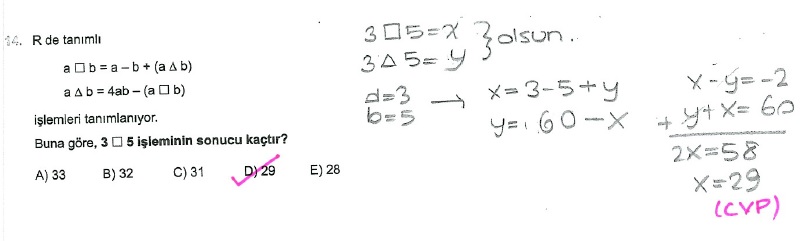 14. R de tanımlı
a □ b = a – b + (a Δ b)
a Δ b = 4ab – (a □ b)
işlemleri tanımlanıyor.
Buna göre, 3 □ 5 işleminin sonucu kaçtır?
A) 33 B) 32 C) 31 D) 29 E) 28
3□5=x
3Δ5=y } olsun.
a=3 → x=3-5+y
b=5 y=60-x
x-y=-2
+ y+x=60
2x=58
x=29
(CVP)